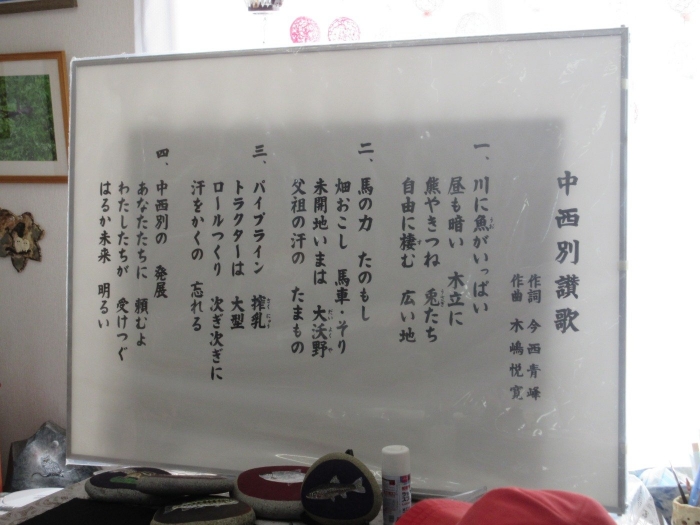 中西別讃歌
作詞 今西青峰
作曲 木嶋悦寛
一、川に魚がいっぱい
昼も暗い 木立に
熊やきつね 兎たち
自由に棲む 広い地
二、馬の力 たのもし
畑おこし 馬車・そり
未開地いまは 大沃野
父祖の汗の たまもの
三、パイプライン 搾乳
トラクターは 大型
ロールつくり 次ぎ次ぎに
汗をかくの 忘れる
四、中西別の 発展
あなたたちに 頼むよ
わたしたちが 受けつぐ
はるか未来 明るい